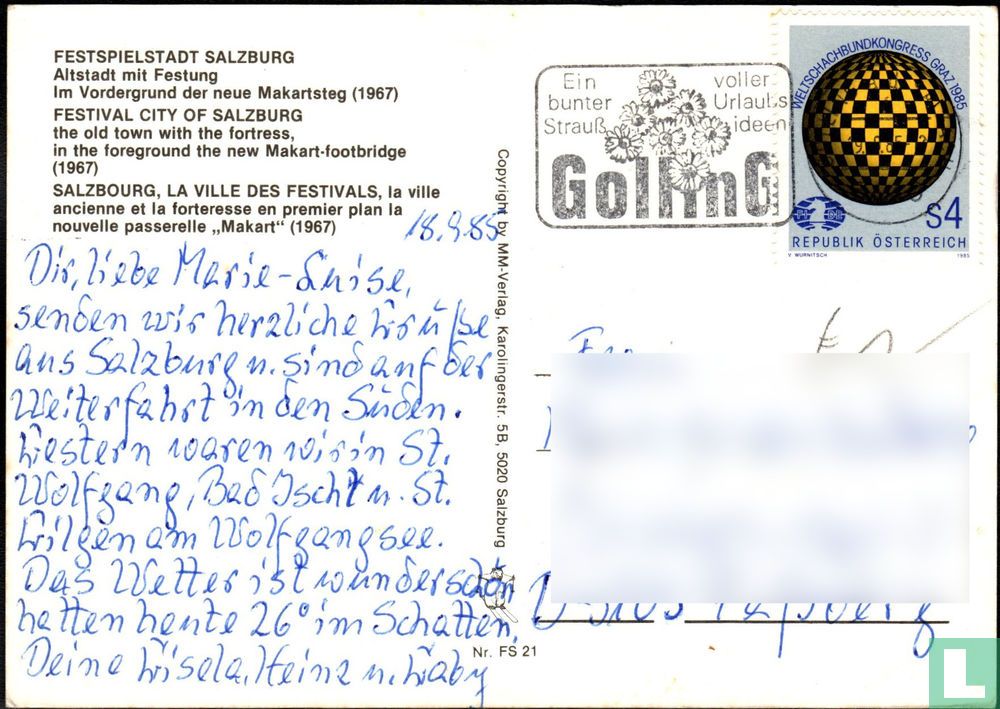 FESTSPIELSTADT SALZBURG
Altstadt mit Festung
Im Vordergrund der neue Makartsteg (1967)
FESTIVAL CITY OF SALZBURG
the old town with the fortress,
in the foreground the new Makart-footbridge
(1967)
SALZBOURG, LA VILLE DES FESTIVALS, la ville
ancienne et la forteresse en premier plan la
nouvelle passerelle „Makart“ (1967)
18.9.85
Dir, liebe Marie-Luise,
senden wir herzliche Grüße
aus Salzburg u. sind auf der
Weiterfahrt in den Süden.
Gestern waren wir in St.
Wolfgang, Bad Ischl u. St.
Gilgen am Wolfgangsee.
Das Wetter ist wunderschön
hatten heute 26° im Schatten.
Deine Gisela, Heinz u. Gaby
Copyright by MM-Verlag, Karolingerstr. 5B, 5020 Salzburg
Nr. FS 21
Ein voller
bunter Urlaubs
Strauß ideen
GollinG
WELTSCHACHBUNDKONGRESS GRAZ 1985
S4
REPUBLIK ÖSTERREICH
V WURNITSCH 1985
L